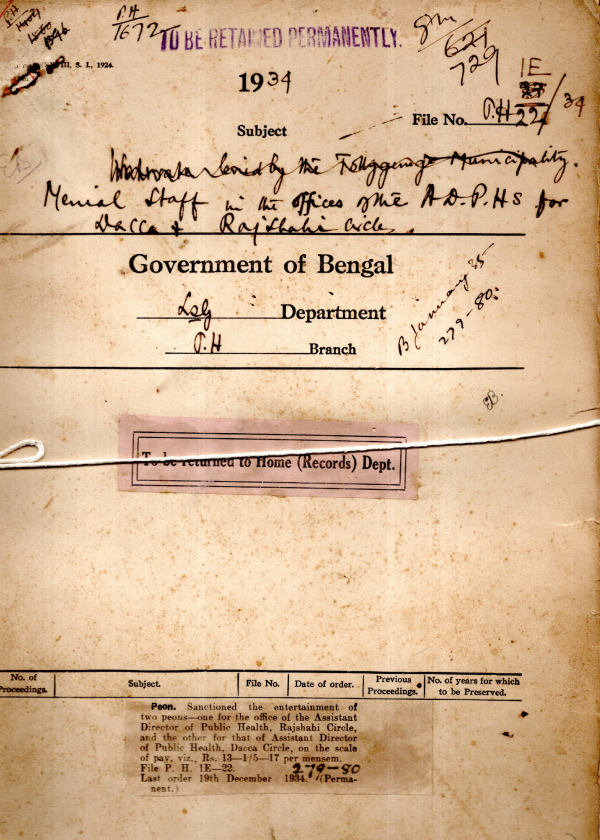 P.H
1672
TO BE RETAINED PERMANENTLY.
621
729
III, S. I., 1924.
1934
1E
File No. P.H 22/34
Subject
levied by the Tollygunge Municipality.
Menial Staff in the offices of the A.D.P.HS for
Dacca & Rajshahi Circles.
Government of Bengal
LSG Department
P.H Branch
B January 35
279-80.
To be returned to Home (Records) Dept.
No. of Proceedings. Subject. File No. Date of order. Previous Proceedings. No. of years for which to be Preserved.
Peon. Sanctioned the entertainment of
two peons—one for the office of the Assistant
Director of Public Health, Rajshahi Circle,
and the other for that of Assistant Director
of Public Health, Dacca Circle, on the scale
of pay, viz., Rs. 13—1/5—17 per mensem.
File P. H. 1E—22. 279-80
Last order 19th December 1934. (Perma-
nent.)